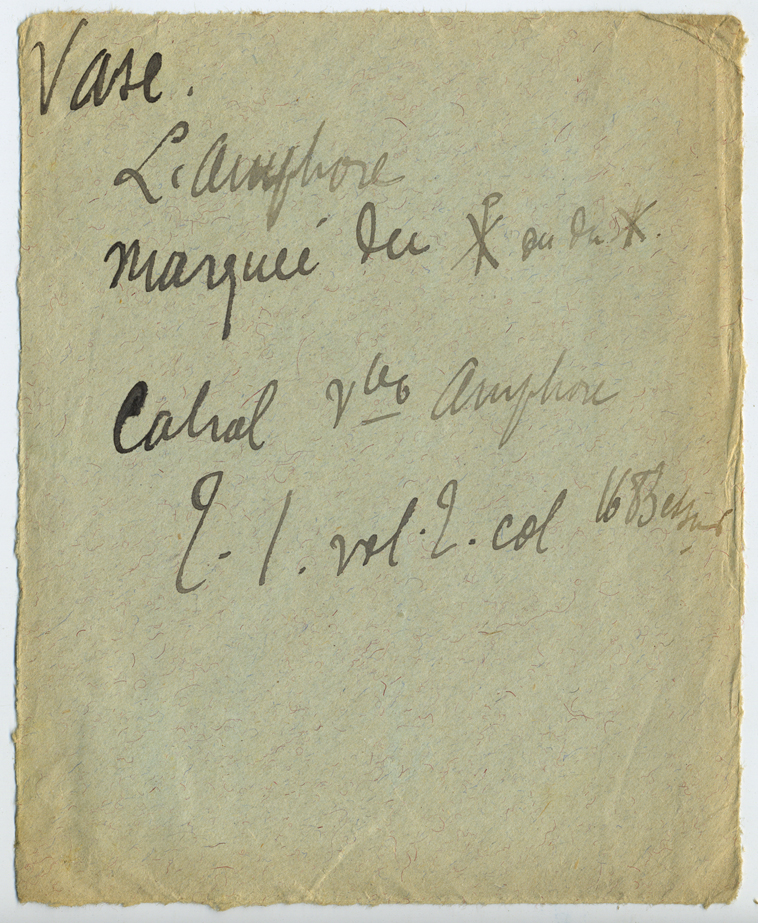 Vase.
L'Amphore
marquée du ☧ ou du
Cabrol Vbo Amphore
T. 1. vol. 2. col 1683